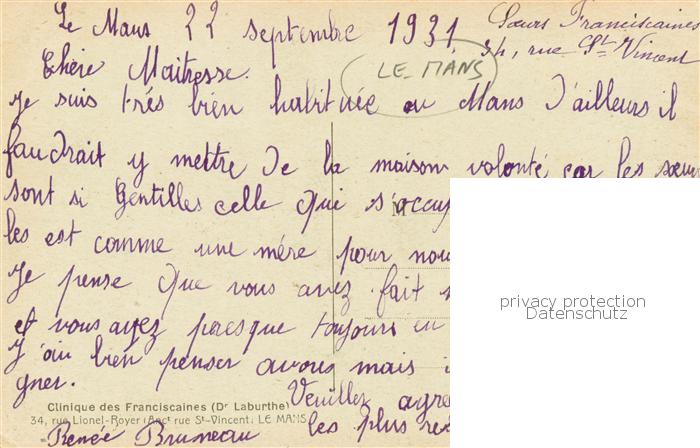 Le Mans 22 septembre 1931
Sœurs Franciscaines
34, rue St Vincent
LE MANS
Chère Maitresse.
Je suis trés bien habituée au Mans d'ailleurs il
faudrait y mettre de la maison volonté car les sœurs
sont si Gentilles celle que s'occup
les est comme une mére pour nou
Je pense que vous avez fait
et vous ayez presque toujours eu
J'ai bien penser avous mais i
gner.
Veuillez agré
les plus res
M
Clinique des Franciscaines (Dr Laburthe)
34, rue Lionel-Royer (Anct rue St-Vincent) LE MANS
Renée Bruneau
privacy protection
Datenschutz